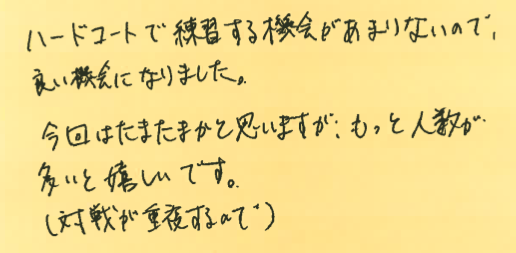 ハードコートで練習する機会があまりないので、
良い機会になりました。
今回はたまたまかと思いますが、もっと人数が
多いと嬉しいです。
(対戦が重複するので)